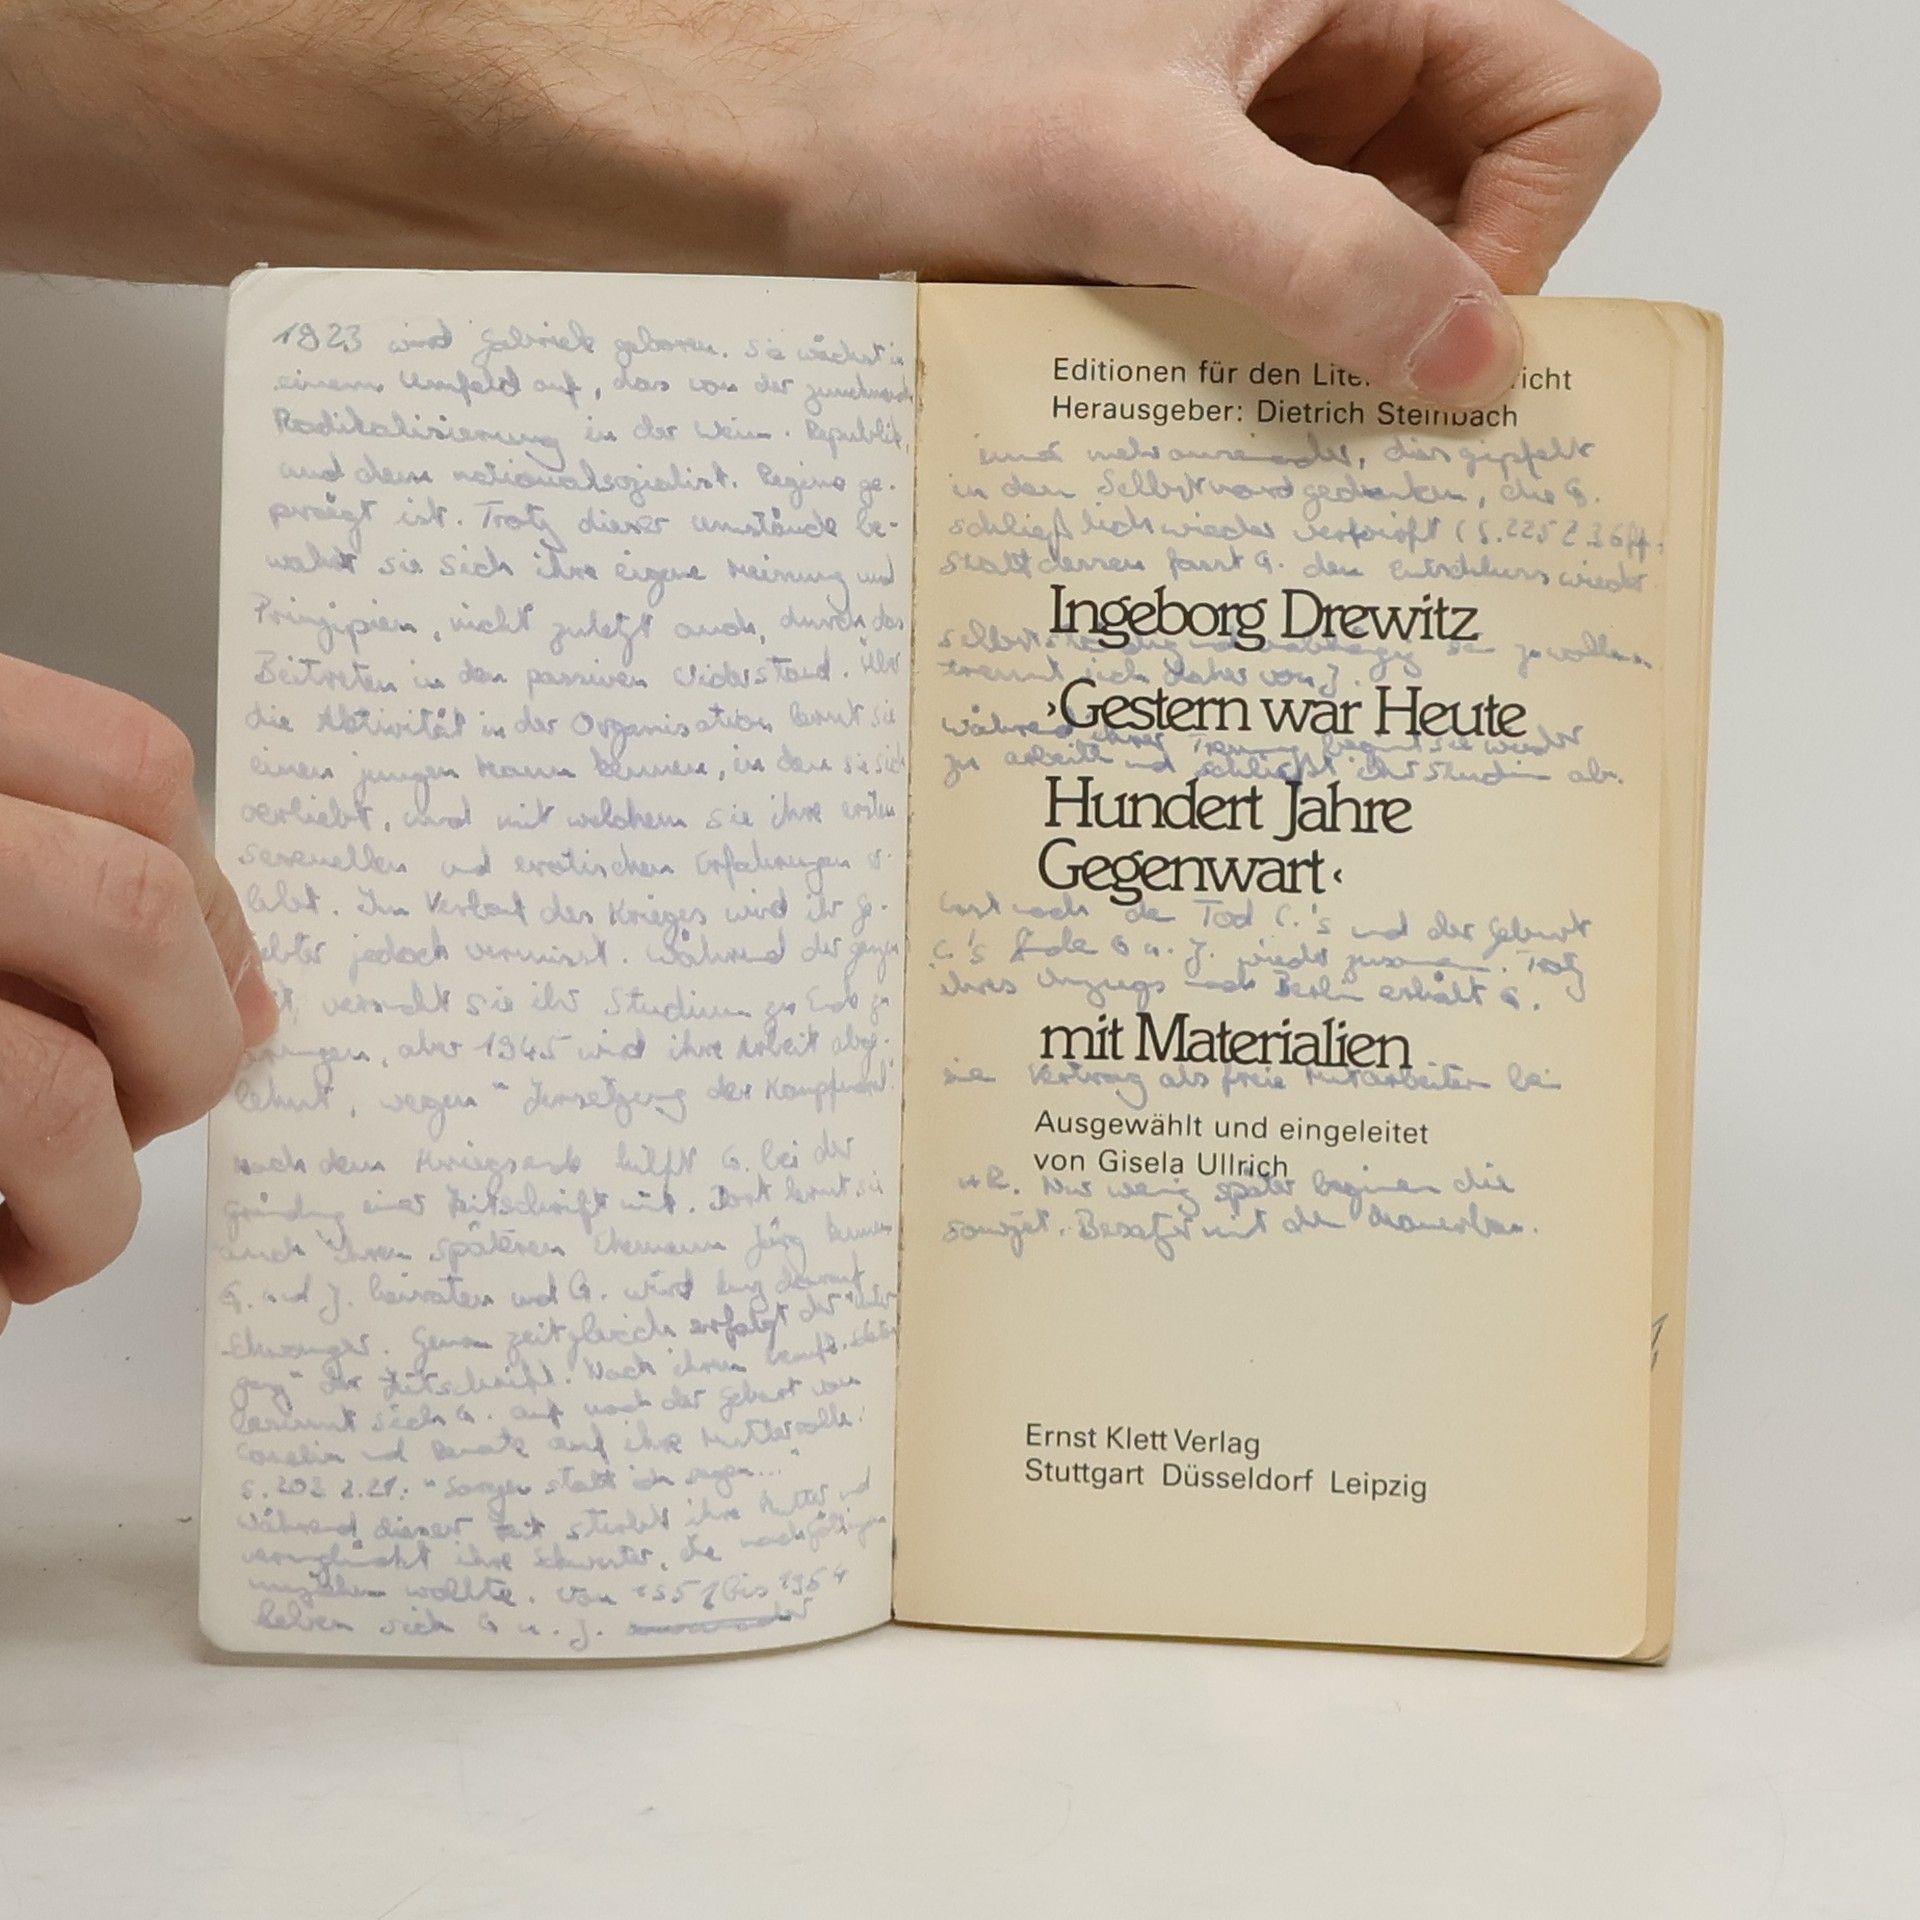 1923 wird Gabriele geboren. Sie wächst in
einem Umfeld auf, das von der
Radikalisierung in der Weim. Republik,
und dem nationalsozialist. Regime ge-
prägt ist. Trotz dieser Umstände be-
wahrt sie sich ihre eigene Meinung und
Prinzipien, nicht zuletzt auch, durch das
Beitreten in den passiven Widerstand. Über
die Aktivität in der Organisation lernt sie
einen jungen Mann kennen, in den sie sich
verliebt, und mit welchem sie ihre ersten
sexuellen und erotischen Erfahrungen er-
lebt. Im Verlauf des Krieges wird ihr Ge-
liebter jedoch vermisst. Während der ganzen
versucht sie ihr Studium zu Ende zu
bringen, aber 1945 wird ihre Arbeit abge-
lehnt, wegen "Zersetzung der Kampfmoral".
Nach dem Kriegsende hilft G. bei der
Gründung einer Zeitschrift mit. Dort lernt sie
auch ihren späteren Ehemann Jörg kennen
G. und J. heiraten und G. wird kurz darauf
schwanger. Genau zeitgleich erfolgt der "Unter-
gang" der Zeitschrift. Nach ihrem
besinnt sich G. auf nach der Geburt von
Cornelia und Renate auf ihre Mutterrolle:
S. 202 Z.21: "Sorgen statt ich sagen..."
Während dieser Zeit stirbt ihre Mutter und
verunglückt ihre Schwester, die nach
umziehen wollte. Von bis 1954
leben sich G u. J.
Editionen für den Lite richt
Herausgeber: Dietrich Steinbach
und mehr auseinander, dies gipfelt
in den Selbstmordgedanken, die G.
schließlich wieder verwirft (S.225 Z.36ff.
Stattdessen fasst G. den Entschluss wieder
Ingeborg Drewitz
selbstständig und unabhängig sein zu wollen
trennt sich daher von J.
›Gestern war Heute
Während ihrer Trennung beginnt sie wieder
zu arbeiten und schließt ihr Studium ab.
Hundert Jahre
Gegenwart‹
Erst nach dem Tod C.'s und der Geburt
C.'s finden G u. J. wieder zusammen. Trotz
ihres Umzugs nach Berlin erhält G.
mit Materialien
sie Vertrag als freie Mitarbeiterin bei
Ausgewählt und eingeleitet
von Gisela Ullrich
Nur wenig später beginnen die
sowjet. Besatzer mit dem Mauerbau.
Ernst Klett Verlag
Stuttgart Düsseldorf Leipzig